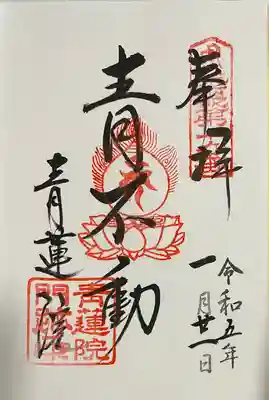 奉拝
令和五年
一月廿一日
青不動
青蓮院
青蓮院